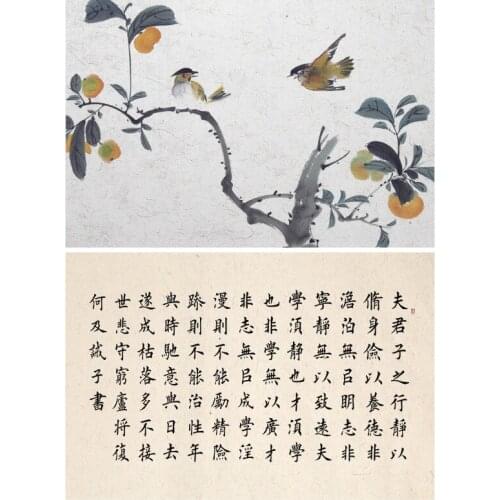 夫君子之行靜以
脩身儉以養德非
澹泊無㠯明志非
寧靜無以致遠夫
學湏靜也才湏學
也非學無以廣才
非志無㠯成學淫
漫則不能勵精險
躁則不能治性年
與時馳意與日去
遂成枯落多不接
世悲守窮廬將復
何及誡子書